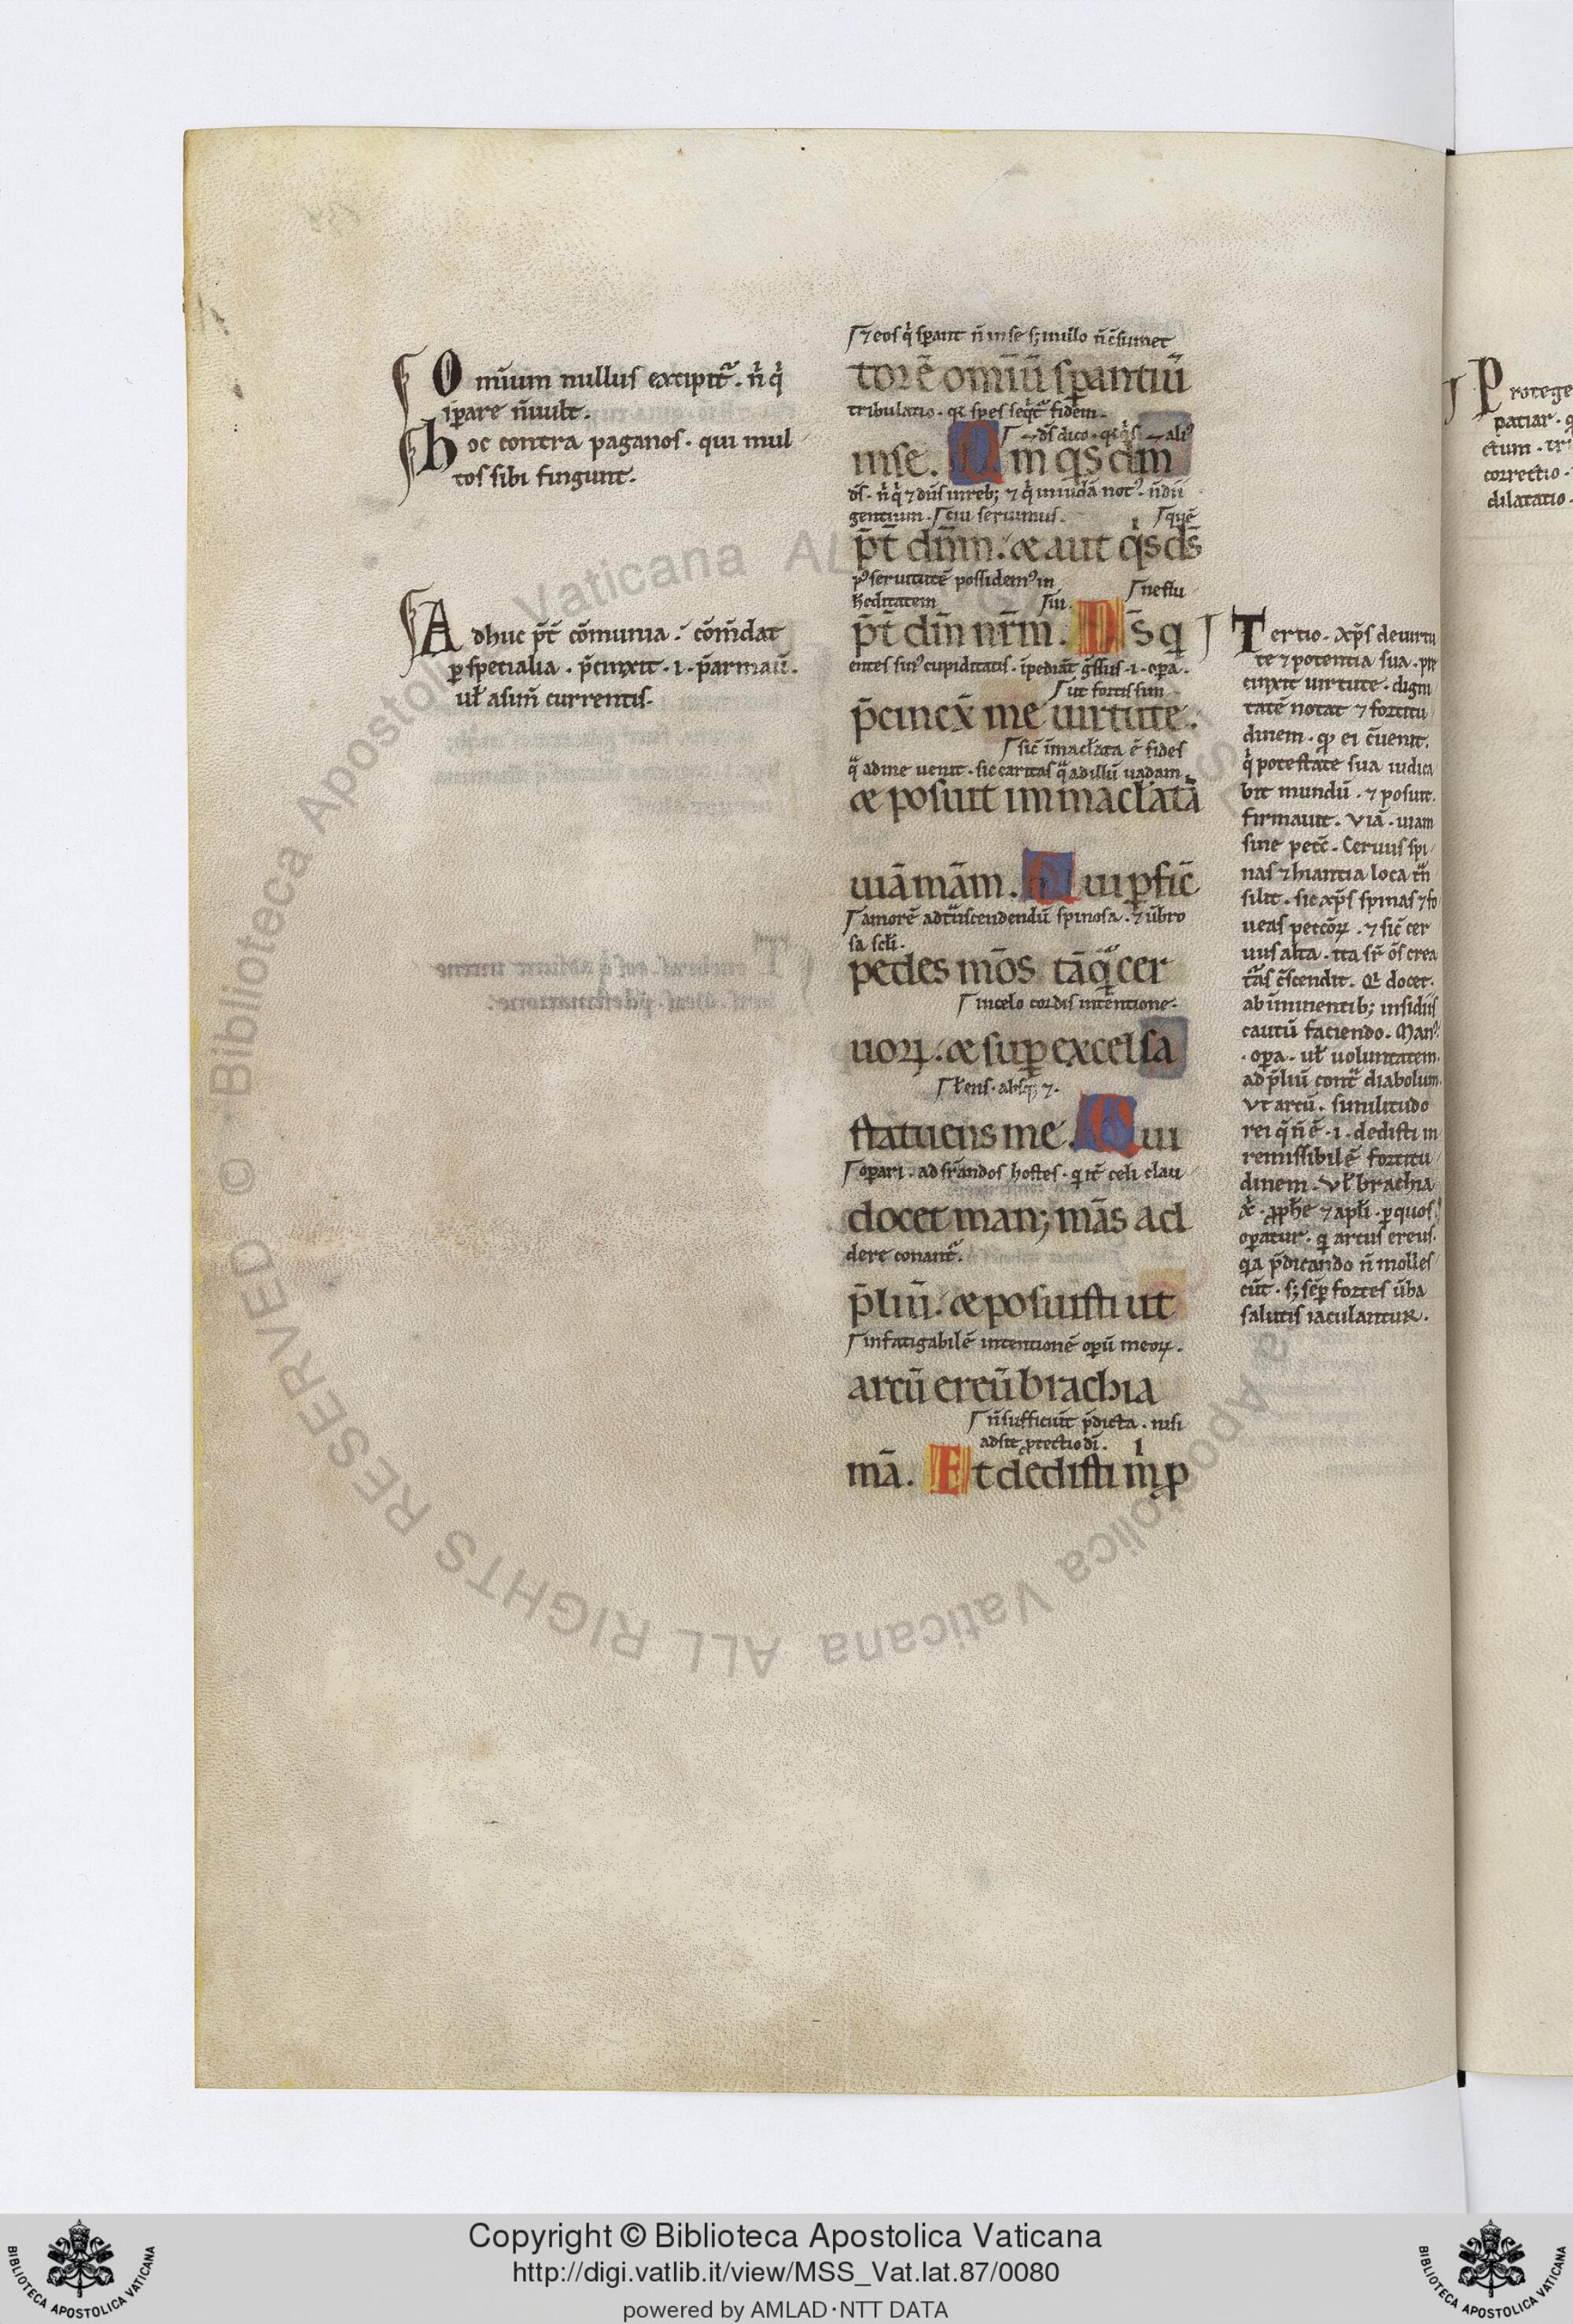 Om̅ium nullus excipit᷑. n̅ q̇
sꝑare n̅ uult.
Hoc contra paganos. qui mul
tos sibi fingunt.
Adhuc p̅t̅ co̅munia. co̅m̅dat
ꝑ specialia. p̅cinxit .i. p̅armau̅.
ul̵ asin̅ currentis.
⁊ eos q̇ sꝑant n̅ in se s; in illo
tore̅ omiu̅ sꝑantiu̅
tribulatio. qꝛ spes seq̇t᷑ fidem.
in se. Qm̅ q̇s d̅s
gentium. cui seruimus. que̅
p̅t̅ dn̅m. æ aut q̇s d̅s
seruitute̅ possidemꝰ in
heditatem
p̅t̅ dm̅ nr̅m. D̅s q
entes sinꝰ cupiditatis. i̅pedia̅t g̅ssus .i. oꝑa.
ut fortis sim
p̅cinx̅ me uirtute.
sic̅ i̅macl̵ata e̅ fides
q̈ ad me uenit. sic caritas q̈ ad illu̅ uadam.
æ posuit immacl̵ata̅
uia̅ ma̅m. Qui ꝑfic̅
amore̅ ad ẗnscendendu̅ spinosa. ⁊ u̅bro
sa scl̵i.
pedes mo̅s ta̅q̈ cer
in celo cordis intentione.
uoꝝ. æ suꝑ excelsa
statuens me. Qui
oꝑari. ad fra̅ndos hostes. q
docet man; ma̅s ad
dere conant᷑.
p̅liu̅. æ posuisti ut
infatigabile̅ intentione̅ oꝑu̅ meoꝝ.
arcu̅ ereu̅ brachia
n̅ sufficiu̅t p̅dicta. nisi
adsit ꝓtectio di̅.
ma̅. Et dedisti m ꝓ
Tertio. xp̅s de uirtu
te ⁊ potentia sua. pre
cinxit uirtute. digni
tate̅ notat ⁊ fortitu
dinem. qꝫ ei c̅uenit.
q̇ potestate sua iudica
bit mundu̅. ⁊ posuit.
firmauit. Via̅. uiam
sine pecc̅. Ceruus spi
nas ⁊ hiantia loca ẗn
silit. sic xp̅s spinas ⁊ fo
ueas peccoꝝ. ⁊ sic̅ cer
uus alta. ita sr̅ o̅s crea
t᷑as c̅scendit. Qi docet.
ab i̅minentib; insidiis
cautu̅ faciendo. Manꝰ.
oꝑa. ul̵ uoluntatem.
ad p̅liu̅ conẗ diabolum.
Vt arcu̅. similitudo
rei q̅ n̅ e̅ .i. dedisti in
remissibile̅ fortitu
dinem. Vl̵ brachia
ꝓph̅e ⁊ apl̵i. ꝑ quos
oꝑatur. q arcus ereus.
qꝛa p̅dicando n̅ molles
cu̅t. s; se̅ꝑ fortes u̅ba
salutis iaculantur.
Protege
patiar. q
ctum. tri
correctio.
dilatatio.
© Biblioteca Apostolica Vaticana ALL RIGHTS RESERVED
Copyright © Biblioteca Apostolica Vaticana
http://digi.vatlib.it/view/MSS_Vat.lat.87/0080
powered by AMLAD·NTT DATA
BIBLIOTECA APOSTOLICA VATICANA
BIBLIOTECA APOSTOLICA VATICANA